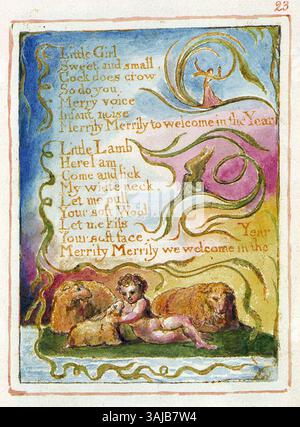 23
Little Girl
Sweet and small
Cock does crow
So do you.
Merry voice
Infant noise
Merrily Merrily to welcome in the Year
Little Lamb
Here I am.
Come and lick
My white neck.
Let me pull
Your soft Wool.
Let me kiss
Your soft face.
Merrily Merrily we welcome in the
Year
alamy
Image ID: 3AJB7W4
www.alamy.com